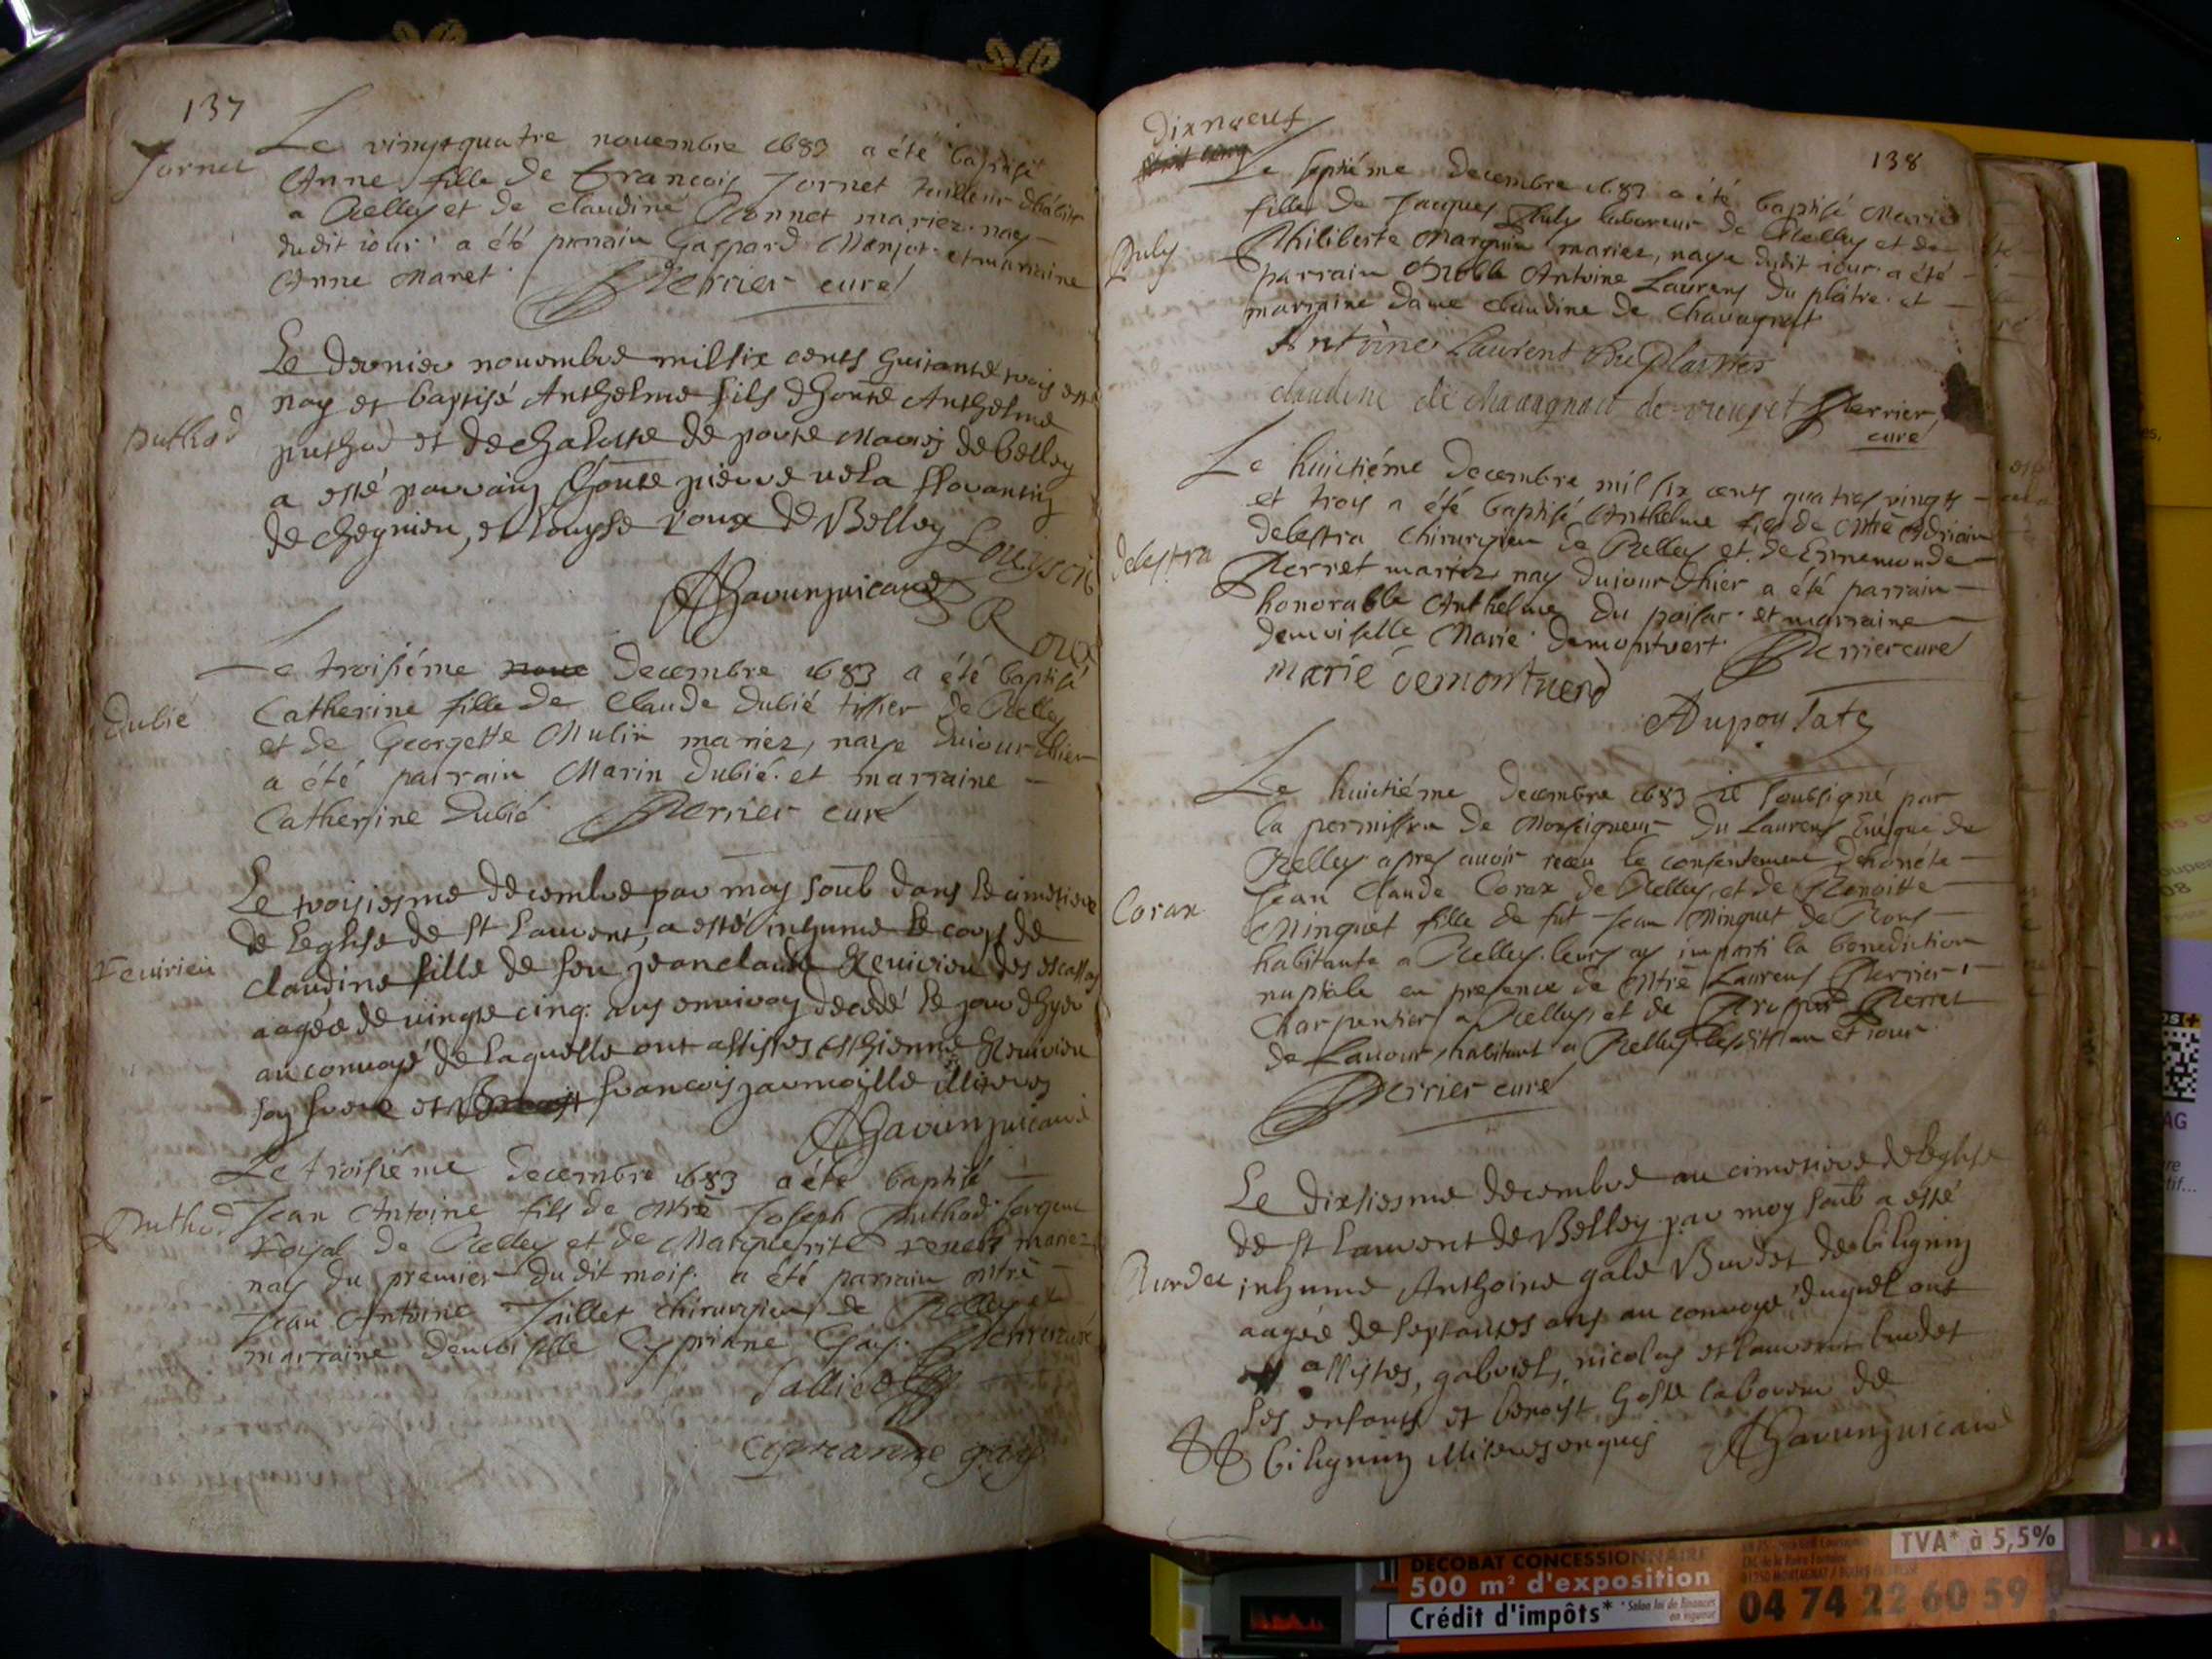 137
Jornet
Le vingt quatre novembre 1683 a été baptisé
Anne fille de Francois Jornet tailleur d'habits
a Belley et de Claudine Bonnet mariez. nay
dudit iour. a été parrain Gaspard Monjot. et marraine
Anne Maret. Perrier curé
puthod
Le dernier novembre mil six cents huitante trois est
nay et baptisé Anthelme fils d'honte Anthelme
puthod et de de porte Maries de belley
a esté parrain honte pierre vela florantin
de chegnieu, et louyse roux de Belley
Louyse
Roux
Dubié
Le troisiéme decembre 1683 a été baptisé
Catherine fille de Claude Dubié tissier de Belley
et de Georgette Mulin mariez, naye du iour d'hier
a été parrain Marin Dubié. et marraine
Catherine Dubié. Perrier curé
Reuirieu
Le troisiesme decembre par moy soub dans le cimetiere
de leglise de St Laurent, a esté inhumé le corps de
claudine fille de feu jean claude Reuirieu des
aagée de vingte cinq ans environ decedé le jour d'hyer
au convoye de laquelle ont assistes esthienne Reuirieu
son frere et francois illiteres
Puthod
Le troisiéme decembre 1683 a été baptisé
Jean Antoine fils de Mre Joseph Puthod. sergent
royal de Belley et de Marguerite mariez
nay du premier dudit mois. a été parrain Mtre
Jean Antoine Jallier chirurgien de Belley et
marraine demoiselle Cypriane Gay. Perrier curé
Jallier
Cyprianne gay
Dixneuf
138
Le septiéme decembre 1683 a été baptisé Marie
fille de Jacques July laboureur de Belley et de
July
Philiberte Marquin mariez, naye dudit iour a été
parrain Noble Antoine Laurens du plâtre. et
marraine dame Claudine de Chavagnat
Antoine Laurent
claudine de chavagnact de Perrier
curé
Le huictiéme decembre mil six cents quatres vingts
et trois a été baptisé Anthelme fils de Mtre Adriain
Delestra
delestra chirurgien de Belley et de Ennemonde
Perret mariez, nay du iour d'hier a été parrain
honorable Anthelme du poisat. et marraine
demoiselle Marie demontvert. Perrier curé
marie demontverd
ADupousats
Le huictiéme decembre 1683 ie soubsigné par
la permission de Monseigneur Du Laurens Evêque de
Belley. apres avoir receu le consentement d'honéte
Coran
Jean Claude Coran de Belley, et de Benoitte
Minquet fille de fut Jean Minguet de Bons
habitante a Belley. leurs ay imparti la benediction
nuptiale en presence de Mtre Laurens Perrier
charpentier a Belley, et de Prosper Perret
de Lavour, habitant a Belley lesdits an et iour
Perrier curé
Burdet
Le dixiesme decembre au cimetiere de leglise
de St Laurent de Belley par moy soub a esté
inhumé Anthoine gale Burdet de biligning
aagée de septantes ans au convoye duquel ont
assistes, gabriel, nicolas et laurent burdet
ses enfants et benoist laboreur de
biligning illiteres enquis
DECOBAT CONCESSIONNAIRE
500 m² d'exposition
Crédit d'impôts*
* Selon loi de finances
en vigueur
TVA* à 5,5%
04 74 22 60 59